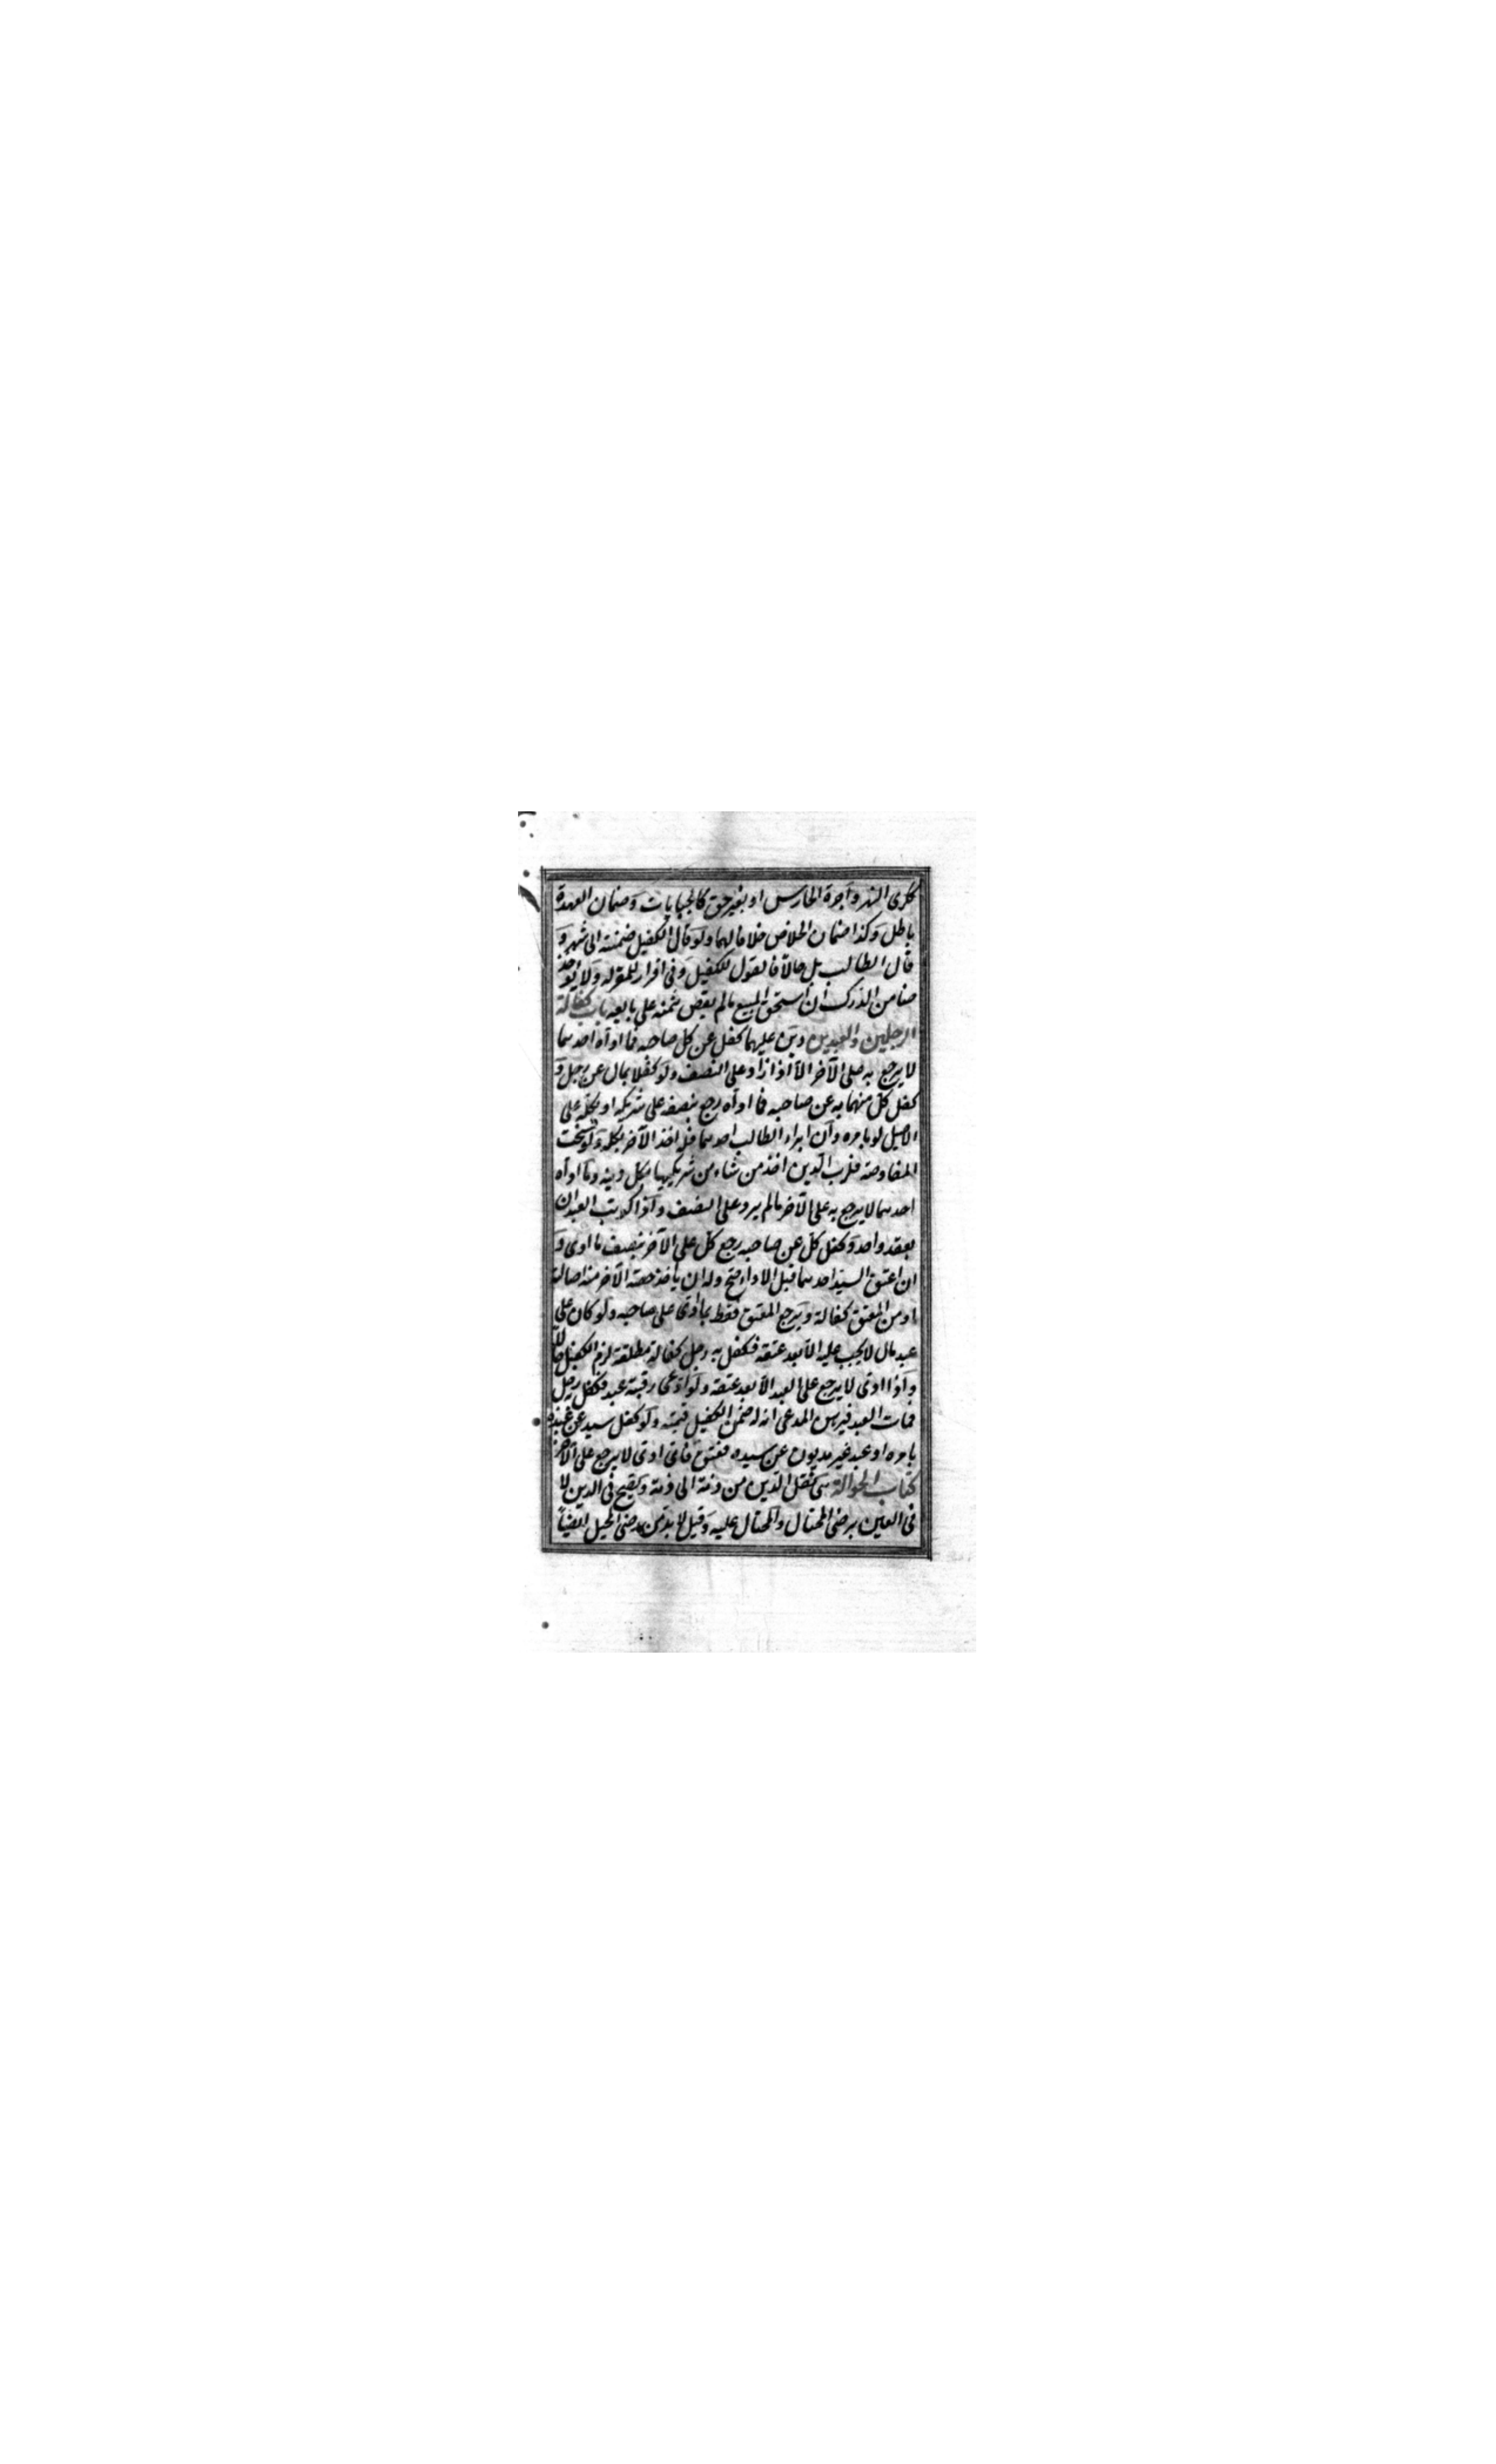 ككرى النهر وأجرة الحارس او بغير حق كالجبايات وضمان العهدة
باطل وكذا ضمان الخلاص خلافا لهما ولو قال الكفيل ضمنته الى شهر و
قال الطالب بل حالا فالقول للكفيل وفى اقرار للمقر له ولا يؤخذ
ضامن الدرك ان استحق المبيع مالم يقض بثمنه على بايعه باب كفالة
الرجلين والعبدين دين عليهما كفل عن كل صاحبه فما اداه احدهما
لا يرجع به على الآخر الا اذا زاد على النصف ولو كفلا بمال عن رجل و
كفل كل منهما به عن صاحبه فما اداه رجع بنصفه على شريكه او بكله على
الاصيل لو بامره وان ابراء الطالب احدهما فله اخذ الآخر بكله ولو فسخت
المفاوضة فلرب الدين اخذ من شاء من شريكيها بكل دينه وما اداه
احدهما لا يرجع به على الآخر مالم يزد على النصف واذا كوتب العبدان
بعقد واحد وكفل كل عن صاحبه رجع كل على الآخر بنصف ما ادى و
ان اعتق السيد احدهما قبل الاداء صح وله ان يأخذ حصة الآخر منه اصالة
او من المعتق كفالة ويرجع المعتق فقط بما ادى على صاحبه ولو كان على
عبد مال لا يجب عليه الا بعد عتقه فكفل به رجل كفالة مطلقة لزم الكفيل حالا
واذا ادى لا يرجع على العبد الا بعد عتقه ولو ادعى رقبة عبد فكفل به رجل
فمات العبد فبرهن المدعى انه له ضمن الكفيل قيمته ولو كفل سيد عن عبده
بامره او عبد غير مديون عن سيده فعتق فاى ادى لا يرجع على الآخر
كتاب الحوالة هى نقل الدين من ذمة الى ذمة وتصح فى الدين لا
فى العين برضى المحتال والمحتال عليه وقيل لا بد من رضى المحيل ايضا